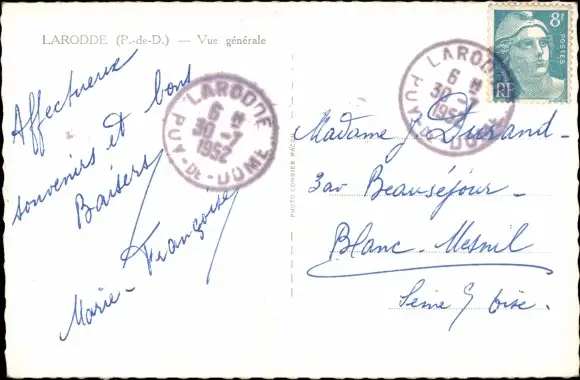 LARODDE (P.-de-D.) — Vue générale
Affectueux
souvenirs et bons
Baisers
Marie-Françoise
LARODDE
6 H
30-7
1952
PUY-DE-DOME
PHOTO COMBIER MACON
LARODDE
6 H
30-7
1952
PUY-DE-DOME
8F
POSTES
RF
Madame J. Durand-
3 av Beauséjour-
Blanc-Mesnil
Seine & Oise.